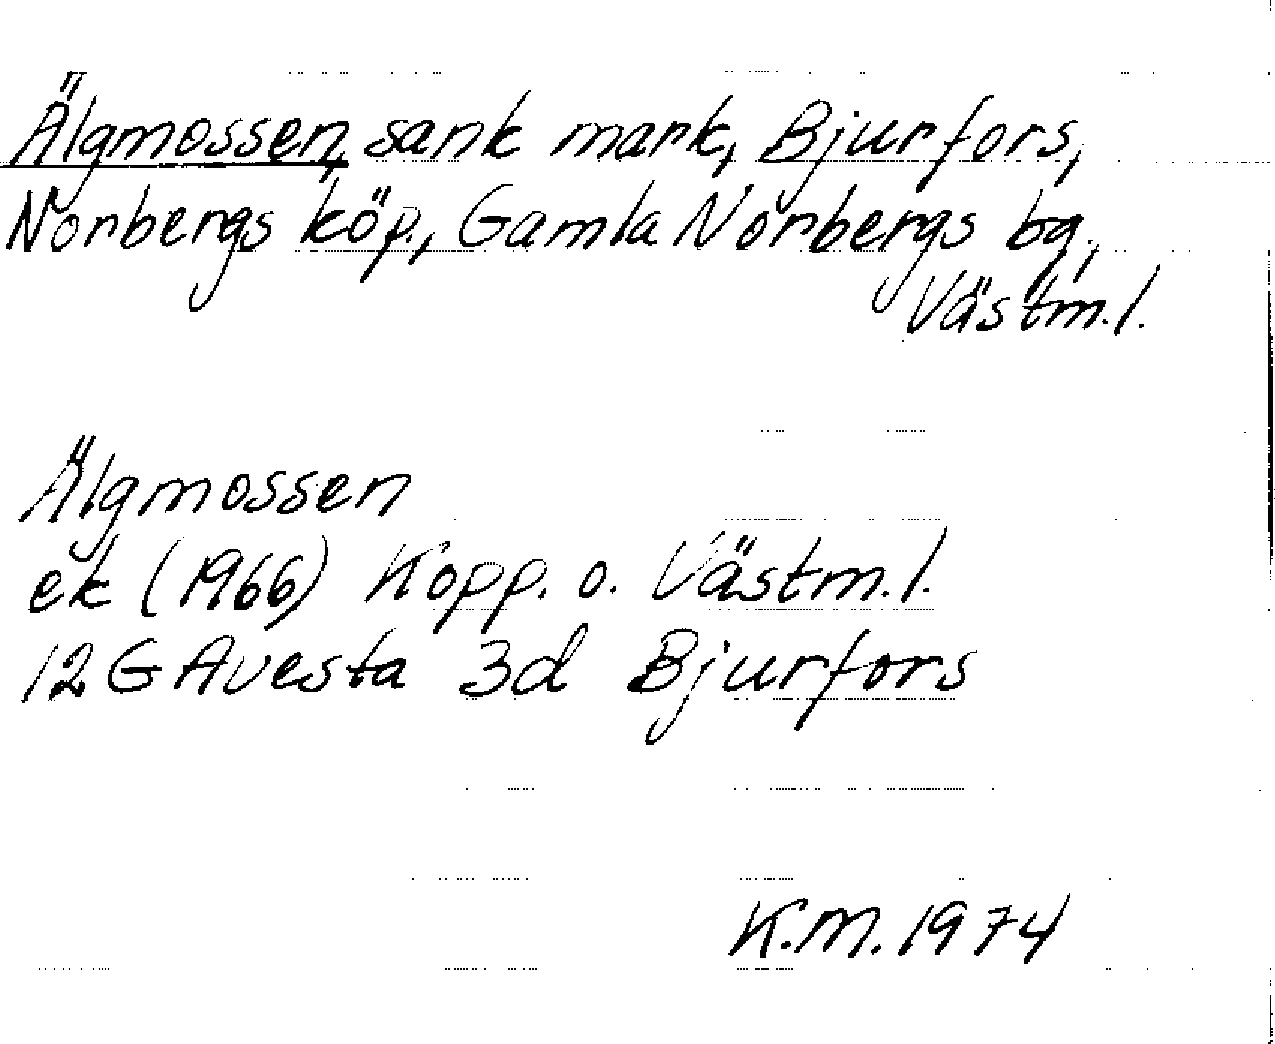 Älgmossen, sank mark, Bjurfors,
Norbergs köp., Gamla Norbergs bg.,
Västm.l.
Älgmossen
ek (1966) Kopp. o. Västm.l.
12G Avesta 3d Bjurfors
K.M. 1974